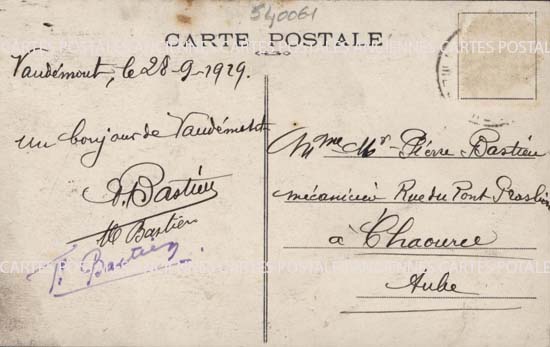 540061
CARTE POSTALE
Vaudémont, le 28-9-1929.
un bonjour de Vaudémont
A. Bastien
M Bastien
P. Bastien
Mme Mr Pierre Bastien
mécanicien Rue du Pont
à Chaource
Aube
CARTES POSTALES ANCIENNES CARTES POSTALES